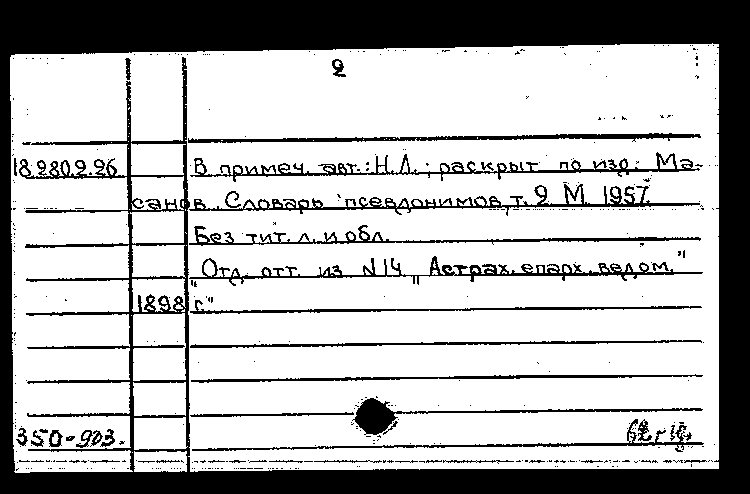 2
18.2802.26 В примеч. авт.: Н.Л.; раскрыт по изд: Ма-
санов. Словарь псевдонимов, т. 2 М. 1957.
Без тит. л. и обл.
"Отд. отт. из N14 "Астрах. епарх. ведом."
1898 г."
350-903.